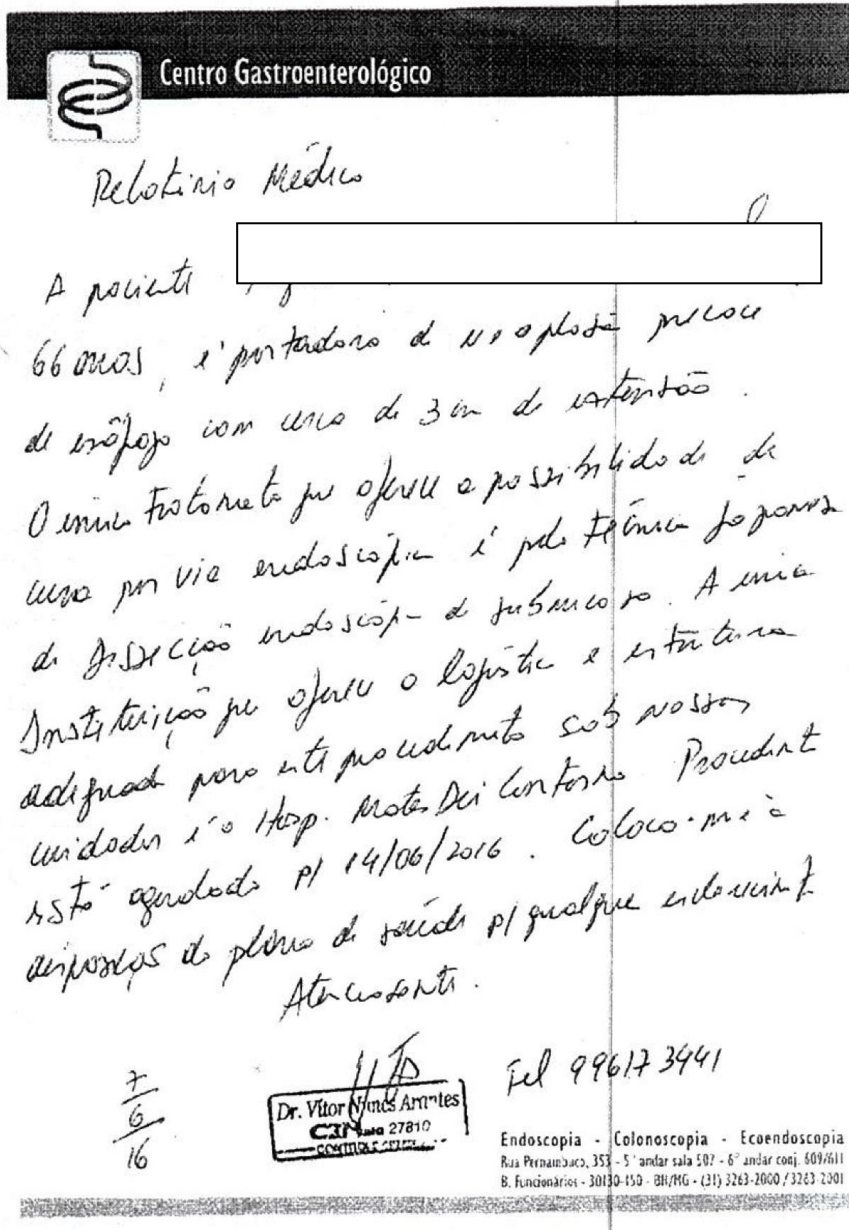 Centro Gastroenterológico
Relatório Médico
A paciente
66 anos, é portadora de neoplasia precoce
de esôfago com cerca de 3 cm de extensão.
O único tratamento que oferece a possibilidade de
cura por via endoscópica é pela técnica japonesa
de dissecção endoscópica de submucosa. A única
Instituição que oferece a logística e estrutura
adequada para este procedimento sob nossos
cuidados é o Hosp. Mater Dei Contorno Procedimento
está agendado p/ 14/06/2016. Coloco-me à
disposição do plano de saúde p/ qualquer esclarecimento
Atenciosamente.
7/6/16
Dr. Vitor Nunes Arantes
27810
Tel 99617 3441
Endoscopia - Colonoscopia - Ecoendoscopia
Rua Pernambuco, 353 - 5º andar sala 507 - 6º andar conj. 609/611
B. Funcionários - 30130-150 - BH/MG - (31) 3263-2000 / 3263-2001